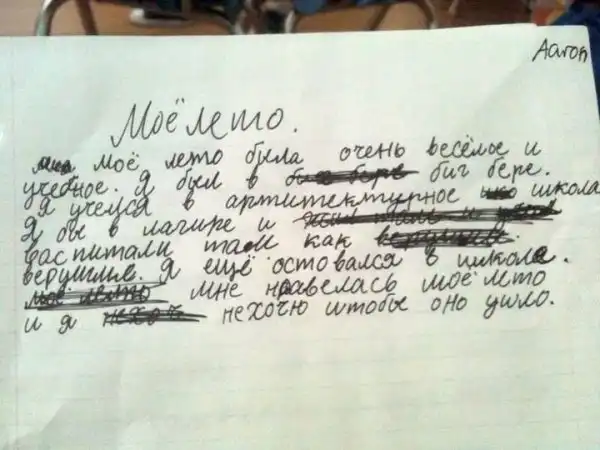 Aaron
Моё лето.
моё лето была очень весёлое и
учебное. Я был в биг бере.
я учелся в артитектурное школа
Я бы в лагире и
распитали там как
верушние. Я ещё остовался в школе.
мне нравелась моё лето
и я нехочю штобы оно ушло.